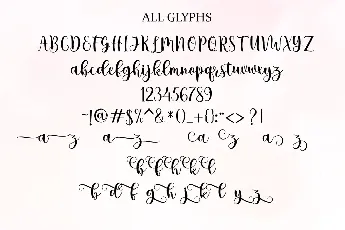 ALL GLYPHS
ABCDEFGHIJKLMNOPQRSTUVWXYZ
abcdefghijklmnopqrstuvwxyz
123456789
~!@#$%^&*()_+{}:"<>?|
a z a z a z a z
b d f g h j k l y z